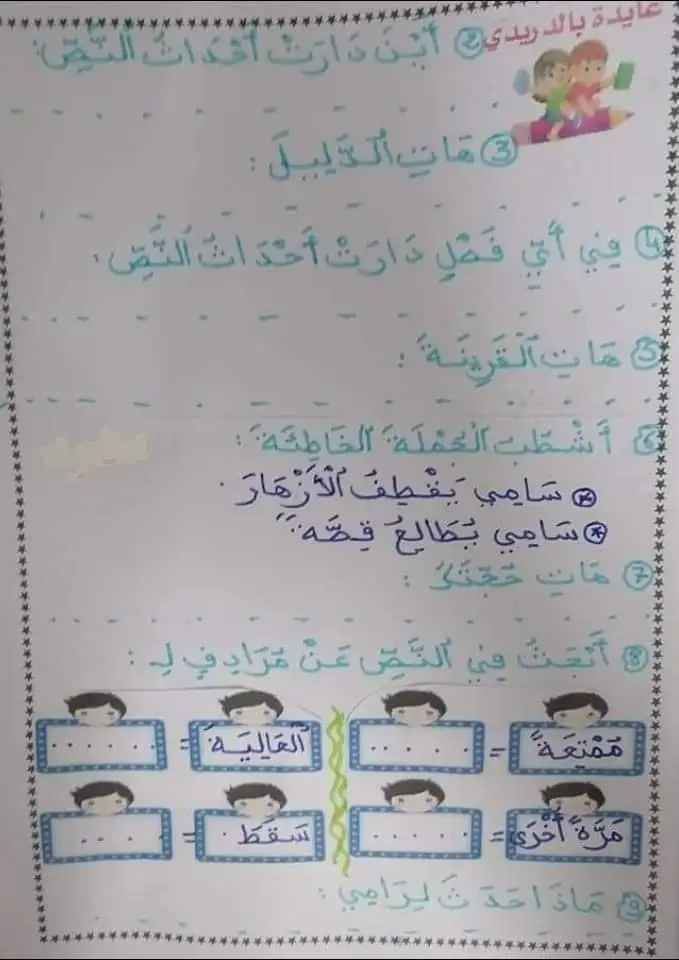 عايدة بالدريدي
② أَيْنَ دَارَتْ أَحْدَاثُ النَّصِّ:
③ هَاتِ الدَّلِيلَ :
④ فِي أَيِّ فَصْلٍ دَارَتْ أَحْدَاثُ النَّصِّ :
⑤ هَاتِ الْقَرِينَةَ :
⑥ أَشْطُبُ الْجُمْلَةَ الْخَاطِئَةَ :
* سَامِي يَقْطِفُ الْأَزْهَارَ .
* سَامِي يُطَالِعُ قِصَّةً .
⑦ هَاتِ حُجَّتَكَ :
⑧ أَبْحَثُ فِي النَّصِّ عَنْ مُرَادِفٍ لِـ :
مُمْتِعَةً = ..... الْعَالِيَةَ = ......
مَرَّةً أُخْرَى = ..... سَقَطَ = ....
⑨ مَاذَا حَدَثَ لِرَامِي :